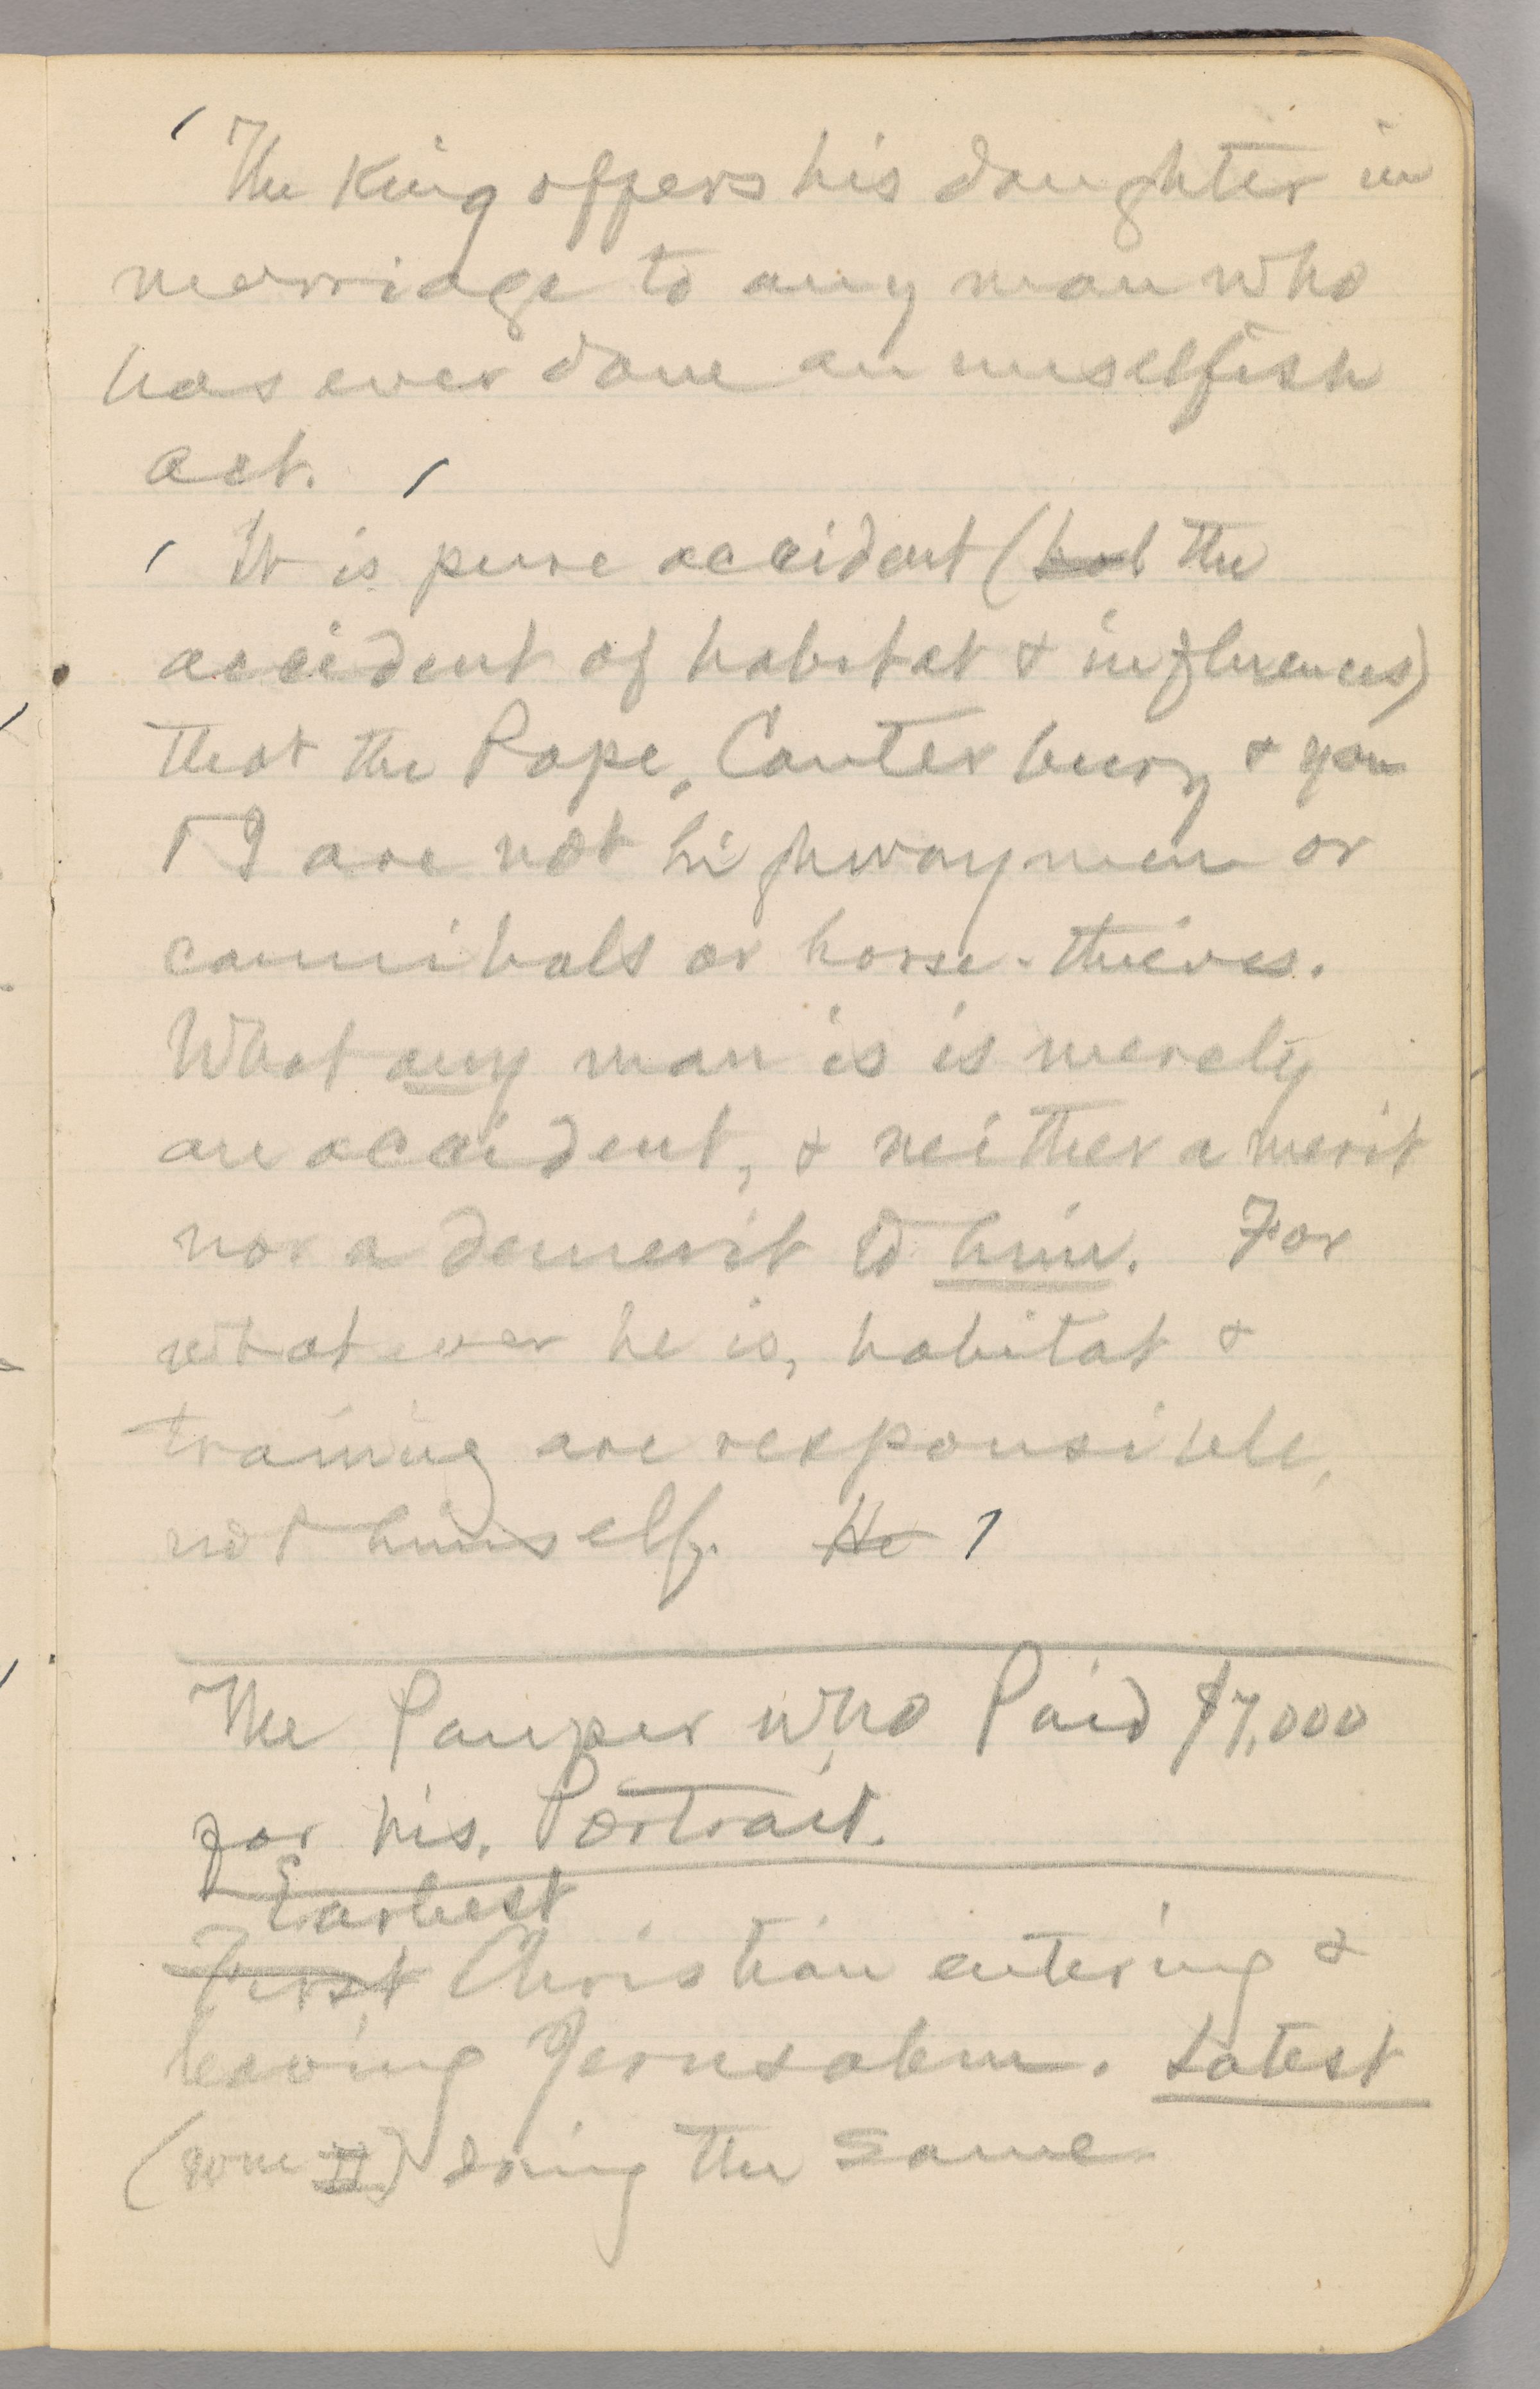 The King offers his daughter in
marriage to any man who
has ever done an unselfish
act.
It is pure accident (the
accident of habitat & influences)
that the Pope, Canterbury & you
& I are not highwaymen or
cannibals or horse-thieves.
What any man is is merely
an accident, & neither a merit
nor a demerit to him. For
whatever he is, habitat &
training are responsible,
not himself. He
The Pauper who Paid $7,000
for his Portrait.
Earliest
First Christian entering &
leaving Jerusalem. Latest
(Wm II) doing the same